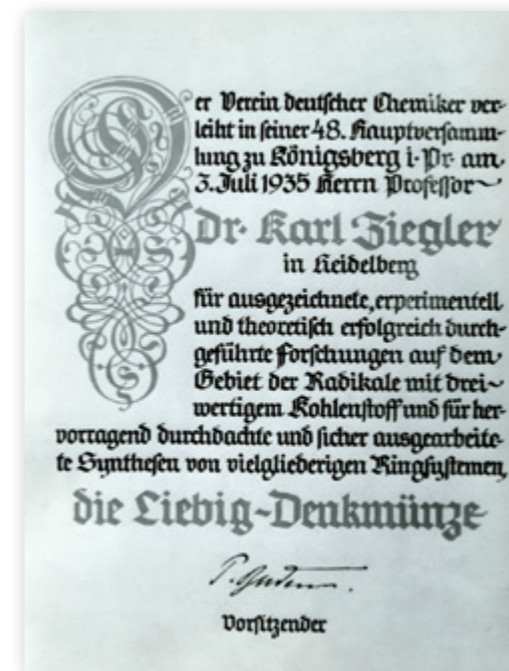 Der Verein deutscher Chemiker ver-
leiht in seiner 48. Hauptversamm-
lung zu Königsberg i. Pr. am
3. Juli 1935 Herrn Professor
Dr. Karl Ziegler
in Heidelberg
für ausgezeichnete, experimentell
und theoretisch erfolgreich durch-
geführte Forschungen auf dem
Gebiet der Radikale mit drei-
wertigem Kohlenstoff und für her-
vorragend durchdachte und sicher ausgearbeite-
te Synthesen von vielgliederigen Ringsystemen,
die Liebig-Denkmünze
Vorsitzender